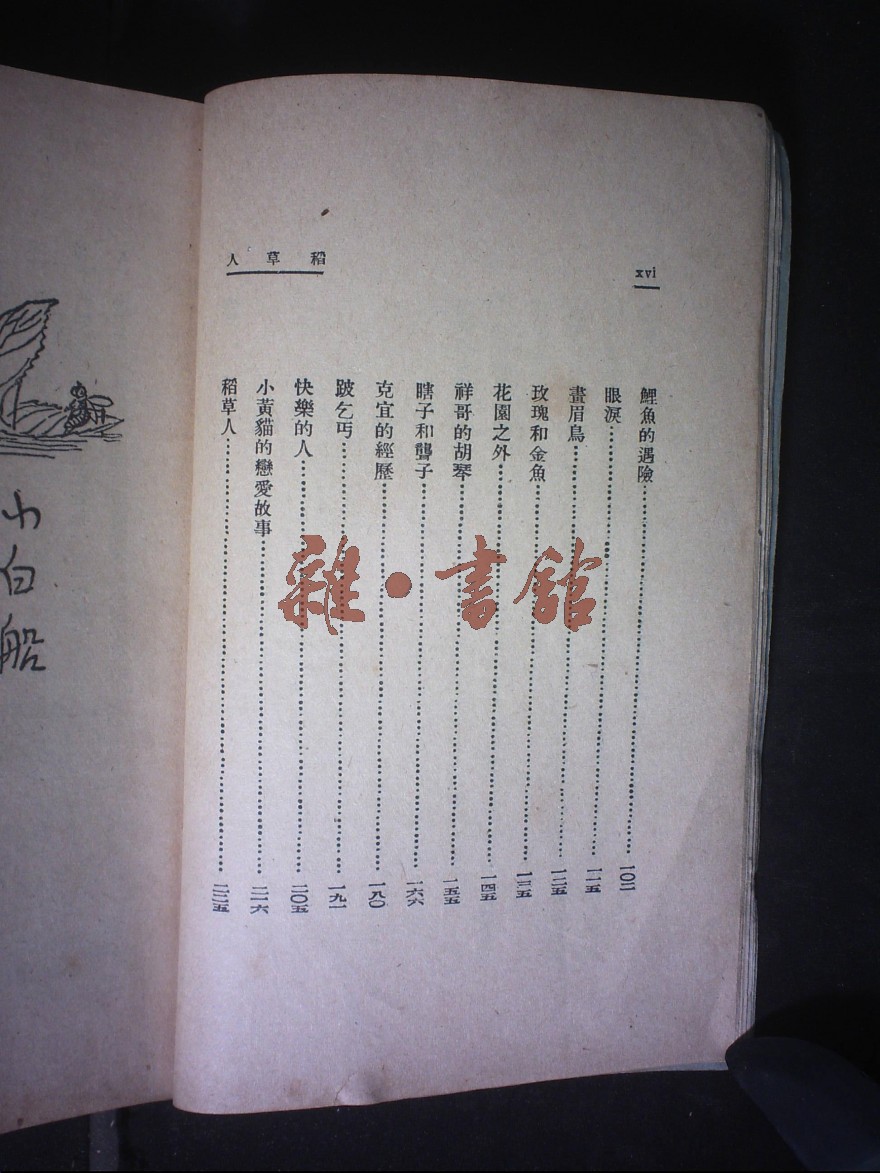 稻草人
xvi
鯉魚的遇險……一〇二
眼淚……一一五
畫眉鳥……一二五
玫瑰和金魚……一三五
花園之外……一四五
祥哥的胡琴……一五五
瞎子和聾子……一六六
克宜的經歷……一八〇
跛乞丐……一九一
快樂的人……二〇五
小黃貓的戀愛故事……二一六
稻草人……二二五
小白船
雜·書館